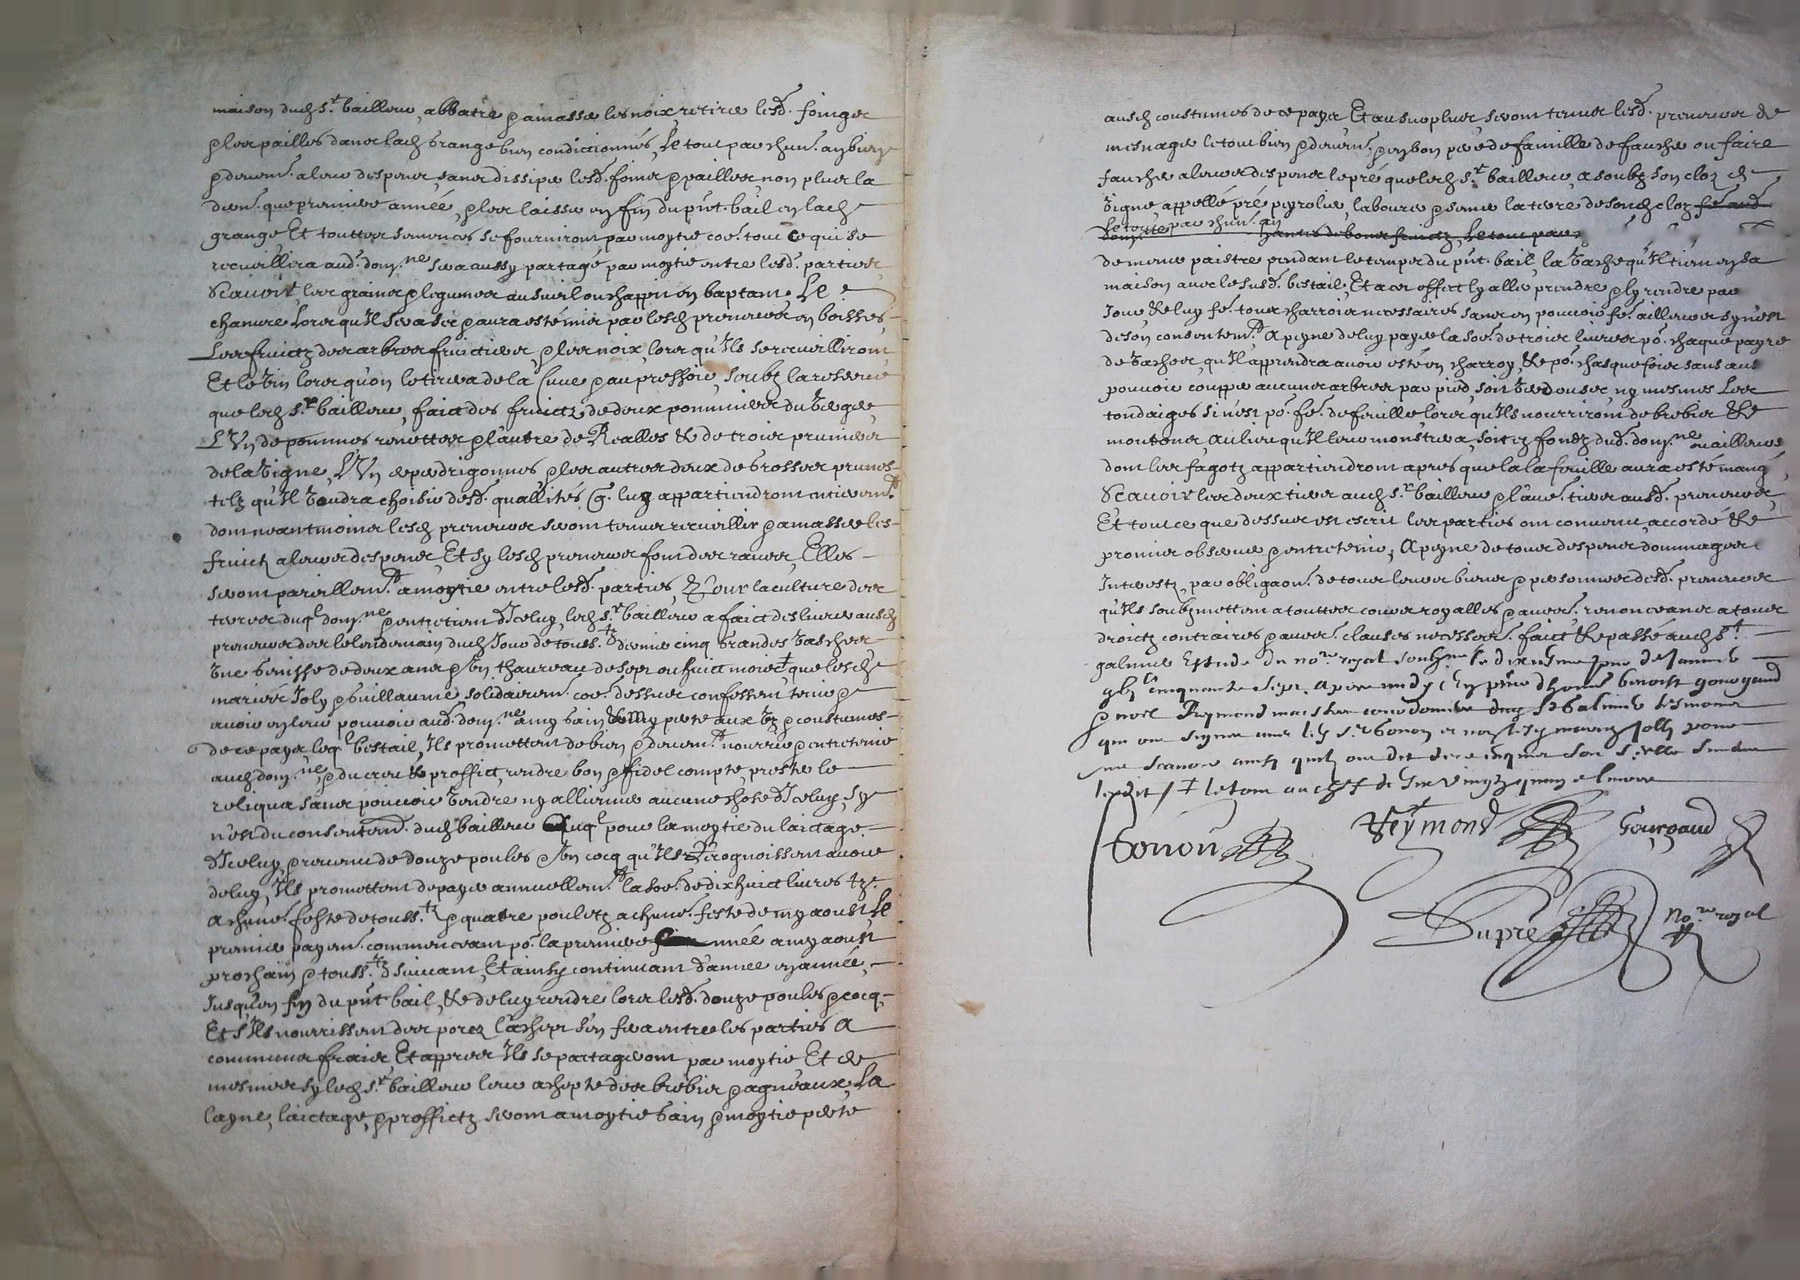 maison dud s.r bailleur, abbatre & amasser les noix retirer lesd. foings et
& les pailles dans lad grange bien conditionnés, Le tout par chun. an bien
& deuem. a leurs despens, sans dissiper lesd. foins & pailles, non plus la
dern. que premiere année, & les laisser en fin du pnt. bail en lad
grange Et touttes semences se fourniront par moytié co.e tout ce qui se
recueillira aud. dom.ne sera aussy partagé par moytié entre lesd. parties
Scauoir les grains & legumes au sueil ou chappit en baptant, Le
chanure Lors qu'Il sera sec & aura esté mis par lesd preneurs en bosses,
Les fruictz des arbres fruictiers, & les noix, lors qu'Ils se recueilliront
Et le vin lors qu'on le tirera de la Cuue & au pressoir, soubz la reserue
que led s.r bailleur, faict des fruictz de deux pommiers du verger,
L'Vn de pommes renettes & l'autre de Realles & de trois pruniers
de la vigne, L'Vn de perdrigonnes & les autres deux de grosses prunes
telz qu'Il voudra choisir desd. quallités q. luy appartiendront entierem.t
dont neantmoins lesd preneurs seront tenus recueillir & amasser les
fruictz a leurs despens, Et sy lesd preneurs font des raues, Elles
seront pareillem.t a moytié entre lesd. parties, & pour la culture des
terres dud dom.ne & entretien d'Iceluy, led s.r bailleur a faict deliurer ausd
preneurs des le lendemain dud Jour de touss.ts dernier cinq grandes vasches
Vne genisse de deux ans & Vn thaureau de sept ou huict mois ‡ que lesd
mariés Joly & Guillaume solidairem. co.e dessus confessent tenir &
auoir en leur pouuoir aud. dom.ne a my gain & my perte aux vz & coustumes
de ce pays leql bestail, Ils promettent de bien & deuem.t nourrir & entretenir
aud dom.ne, & du croit & proffict, rendre bon & fidel compte, prester le
reliqua sans pouuoir vendre ny alliener aucune chose d'Iceluy, sy
n'est du consentem.t dud bailleur Auql pour la moytié du laictage
d'Iceluy, prouenu de douze poules & Vn cocq qu'Ils recognoissent auoir
de luy, Ils promettent de payer annuellem.t la so.e de dix huict liures tz.
A chune. feste de touss.ts & quatre pouletz a chune. feste de my aoust, Le
premier payem. commenceant po. la premiere année a my aoust
prochain & touss.ts suiuant, Et ainsy continuant d'année en année,
Jusqu'en fin du pnt bail, & de luy rendre lors lesd. douze poules & cocq,
Et s'Ils nourrissent des porcz l'achept s'en fera entre les parties A
communs fraix, Et appres Ils se partageront par moytié Et de
mesmes sy led s.r bailleur leur achepte des brebis & agneaux, La
layne, laictage, & proffictz seront a moytié gain & moytié perte
ausd coustumes de ce pays, Et au surplus, seront tenus lesd. preneurs de
mesnager le tout bien & deuem. & en bon pere de famille de faucher ou faire
faucher a leurs despens le pré que led s.r bailleur, a soubz son cloz de
vigne, appellé pré peyrolier, labourer & semer la terre de sond cloz
Le tout par chun. an
de mener paistre pendant le temps du pnt. bail, la vache qu'Il tient en sa
maison auec le susd. bestail, Et a cet effect l'y aller prendre & l'y rendre par
Jour & luy fe. tous charrois necessaires sans en pouuoir fe. ailleurs sy n'est
de son consentem.t A peyne de luy payer la so.e de trois liures po. chaque payre
de vaches, qu'Il apprendra auoir esté en charroy, & po. chasque fois sans aussi
pouuoir coupper aucuns arbres par pied, soit verd ou sec, ny mesmes les
tondaiges si n'est po. fe. de feuille lors qu'Ils nourriront de brebis &
moutons, Au lieu qu'Il leur monstrera, soit ez fondz dud. dom.ne ou ailleurs
dont les fagotz appartiendront apres que la feuille aura esté mangé
Scauoir les deux tiers aud s.r bailleur & l'au.e tiers ausd. preneurs,
Et tout ce que dessus est escrit les parties ont conuenu, accordé &
promis obseruer & entretenir, A peyne de tous despens dommages
Interestz, par obligaon. de tous leurs biens & personnes desd. preneurs
qu'Ils soubzmettent a touttes cours royalles & au.es renonceans a tous
droictz contraires & au.es clauses necessaires. faict & passé aud s.t
galmier Estude du no.re royal soubz.né le dixiesme Jour de Januier
gbj.c cinquante sept, apres midy, En pnce d'honn. benoist gourgaud
& noel Reymond maistre cordonnier dud St Galmier tesmoins
qui ont signé auec led s.r thonon et non lesd mariez Jolly pour
ne scauoir ainsy quilz ont dit de ce enquis
Reymond
Gourgaud
Dupré no.re royal